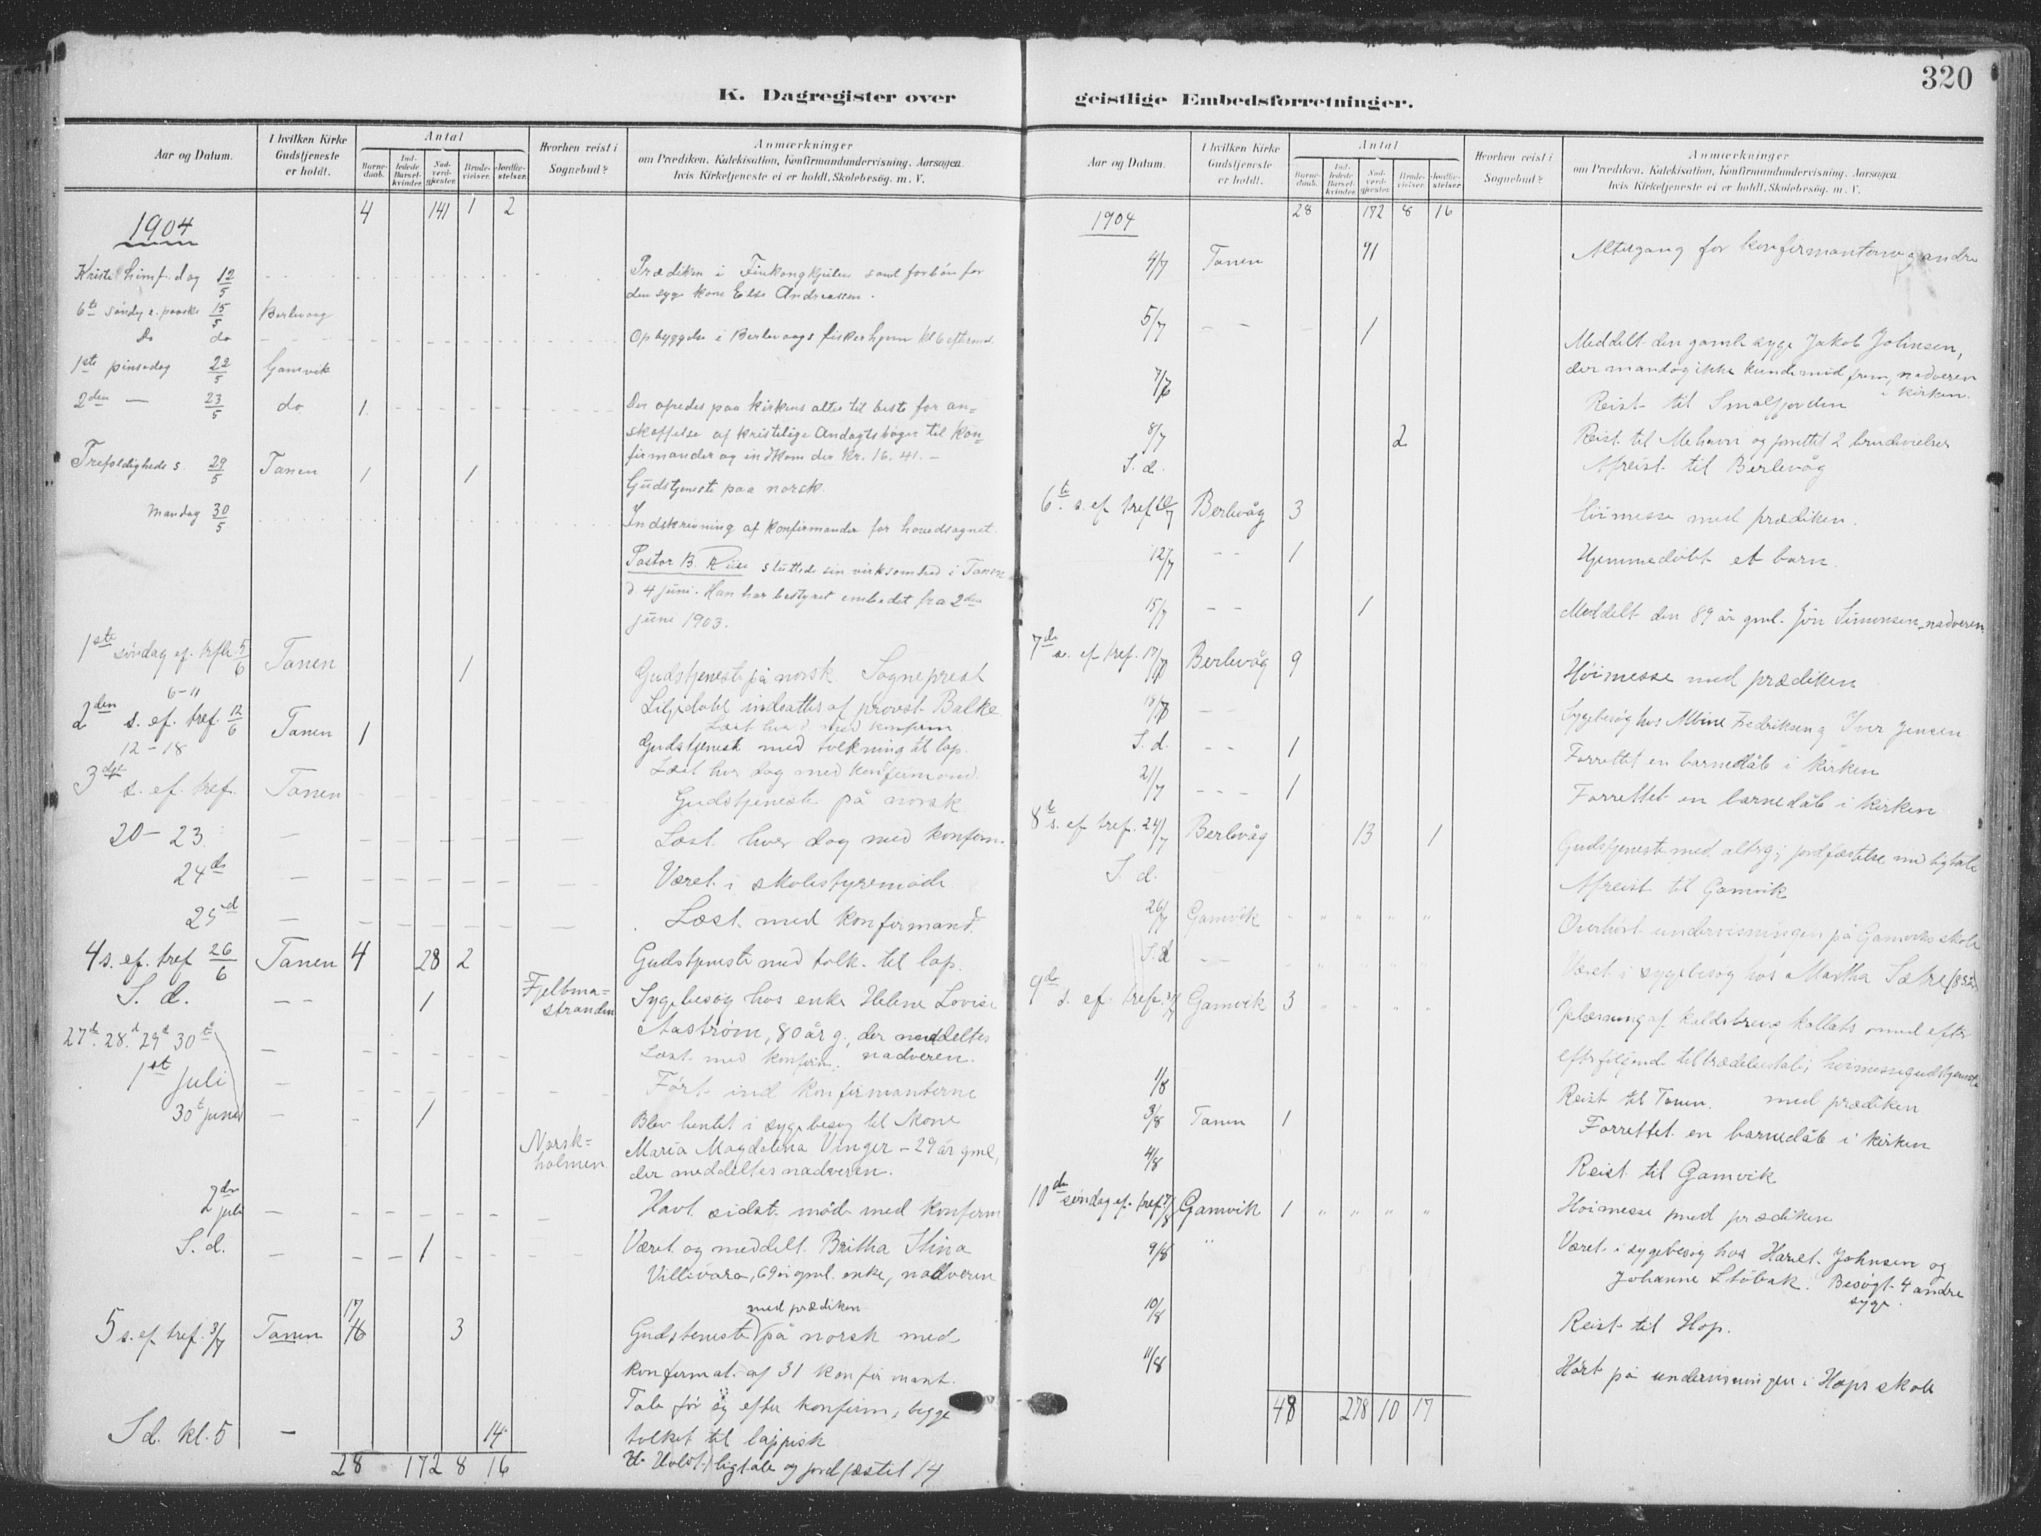 320
K. Dagregister over geistlige Embedsforretninger.
Aar og Datum. I hvilken Kirke Gudstjeneste er holdt. Antal Barnedaab. Indledede Barselkvinder. Nadverdgjester. Brudevielser. Jordfæstelser. Hvorhen reist i Sognebud? Anmærkninger om Prædiken, Katekisation, Konfirmandundervisning, Aarsagen hvis Kirketjeneste ei er holdt, Skolebesøg. m. V.
4 141 1 2
1904
Kristi himf. dag 12/5 Prædiken i Finkongkjilen samt forbøn for
den syge kone Else Andreassen.
6te søndg e. paaske 15/5 Berlevaag
Do do Opbyggelse i Berlevaags fiskerhjem kl 6 efterm.
1ste pinsedag 22/5 Gamvik
2den — 23/5 do 1 Der ofredes paa kirkens alter til beste for an-
skaffelse af kristelige Andagtsbøger til kon-
firmander og indkom der kr. 16.41. –
Trefoldigheds s. 29/5 Tanen 1 1 Gudstjeneste paa norsk.
Mandag 30/5 Indskrivning af konfirmander for hovedsognet.
Pastor B. Riise sluttede sin virksomhed i Tanen
d. 4 juni. Han har bestyret embedet fra 2den
juni 1903.
1ste søndag ef. trefh. 5/6 Tanen 1 Gudstjeneste på norsk Sogneprest
6–11 Liljedahl indsattes af provst Balke
Læst hver d. med konfirm.
2den s. ef. tref. 12/6 Tanen 1 Gudstjeneste med tolkning til lap.
12–18 Læst hver dag med konfirmand.
3die s. ef. tref. Tanen Gudstjeneste på norsk
20–23 — Læst hver dag med konfirm.
24de — Været i skolestyremöde
25d — Læst med konfirmand.
4 s. ef. tref 26/6 Tanen 4 28 2 Gudstjeneste med tolk. til lap.
S. d. – – 1 Fjeldmastranden Sygebesøg hos enke Helene Lovise
Aaström, 80 år g., der meddeltes
nadveren.
27d. 28d 29d 30te — Læst med konfirm.
1st juli — Ført ind konfirmanterne
30te juni — 1 Norskholmen Blev hentet i sygebesøg til kone
Maria Magdalena Vinger – 29 år gml,
der meddeltes nadveren.
2den juli — Havt sidste möde med konfirm
S. d. — 1 Været og meddelt Britha Stina
Villivara, 69 år gml. enke, nadveren
5 s. ef tref. 3/7 Tanen 17 16 3 Gudstjeneste med prædiken på norsk med
konfirmat. af 31 konfirmant.
Tale før og efter konfirm, begge
tolket til lappisk
S d. kl. 5 – 14 ligtale og jordfæstet 14
28 172 8 16
Aar og Datum. I hvilken Kirke Gudstjeneste er holdt. Antal Barnedaab. Indledede Barselkvinder. Nadverdgjester. Brudevielser. Jordfæstelser. Hvorhen reist i Sognebud? Anmærkninger om Prædiken, Katekisation, Konfirmandundervisning, Aarsagen hvis Kirketjeneste ei er holdt, Skolebesøg. m. V.
28 172 8 16
1904
4/7 Tanen 91 Altergang for konfirmanterne og andre
5/7 – – 1 Meddelt den gamle syge Jakob Johnsen,
der ikke kunde frem, nadveren
i kirken.
7/7 Reist til Smalfjorden
8/7 2 Reist til Mehavn og forrettet 2 brudevielser
S. d. Afreist til Berlevåg
6te s. ef tref 10/7 Berlevåg 3 Höimesse med prædiken.
12/7 – – 1 Hjemmedøbt et barn.
15/7 – – 1 Meddelt den 89 år gml. Jön Simonsen nadveren
7de s. ef tref. 17/7 Berlevåg 9 Höimesse med prædiken
– – Sygebesøg hos Albine Fedriksen og Iver Jensen
S. d. – – 1 Forrettet en barnedåb i kirken
21/7 – – – 1 Forrettet en barnedåb i kirken
8de s. ef tref. 24/7 Berlevåg 13 1 Gudstjeneste med altrg; jordfæstelse med ligtale
S. d. Afreist til Gamvik
26/7 Gamvik Overhört undervisningen på Gamviks skole
S. d – – Været i sygebesøg hos Martha Sætre
9de s. ef. tref. 31/7 Gamvik 3 Oplæsning af kaldsbrev kollats med efter
efterfølgende tiltrædelsestale; høimessegudstjeneste
med prædiken
1/8 Reist til Tanen.
3/8 Tanen 1 Forrettet en barnedåb i kirken
4/8 Reist til Gamvik
10de søndag ef. tref. 7/8 Gamvik 1 Höimesse med prædiken
9/8 " Været i sygebesøg hos Johnsen og
Johanne Stöbak. Besøgt 4 andre
syge.
10/8 Reist til Hop.
11/8 Hört på undervisningen i Hops skole
48 278 10 17